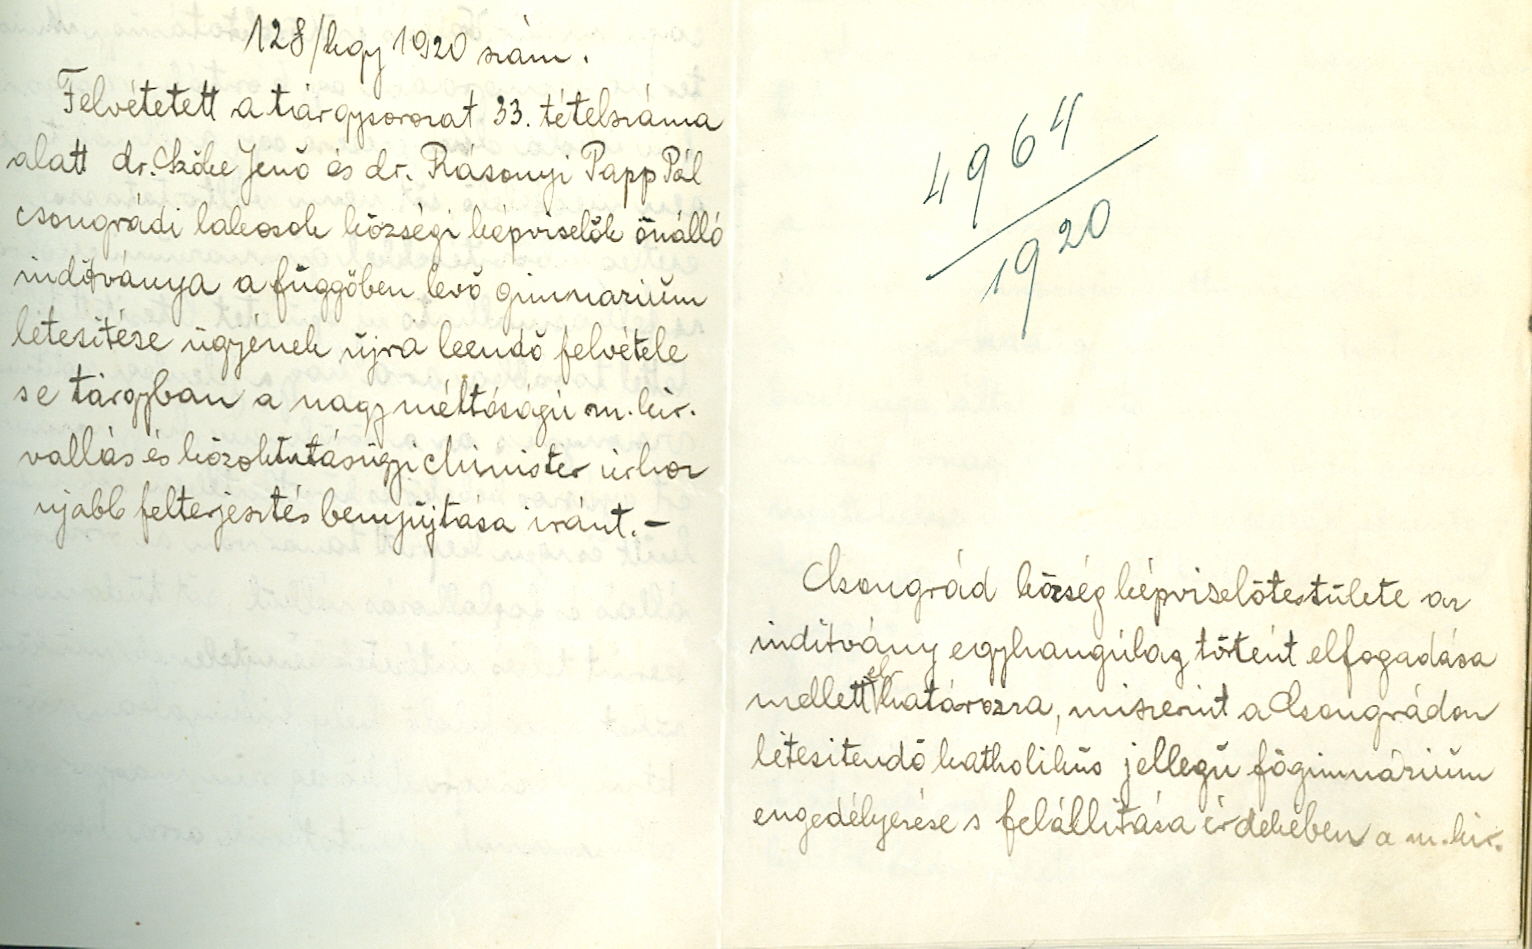 128/kgy 1920 szám.
Felvétetett a tárgysorozat 33. tételszáma
alatt dr. Szőke Jenő és dr. Rásonyi Papp Pál
csongrádi lakosok községi képviselők önálló
inditványa a függőben levő gimnazium
létesitése ügyének újra leendő felvétele
s e tárgyban a nagyméltóságú m. kir.
vallás és közoktatásügyi Minister úrhoz
ujabb felterjesztés benyújtása iránt. –
4964
1920
Csongrád község képviselőtestülete az
inditvány egyhangúlag történt elfogadása
mellett elhatározza, miszerint a Csongrádon
létesitendő katholikus jellegű főgimnázium
engedélyezése s felállitása érdekében a m. kir.